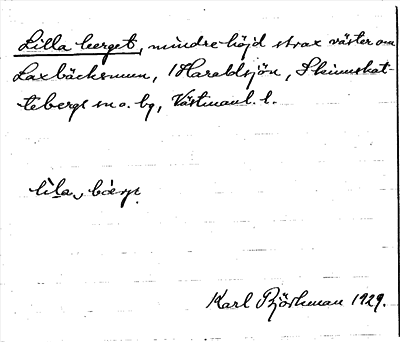 Lilla berget, mindre höjd strax väster om
Laxbäcksmun, Haraldsjön, Skinnskat-
teberg sn o. bg, Västmanl. l.
lìla, bærg̣
Karl Björkman 1929.